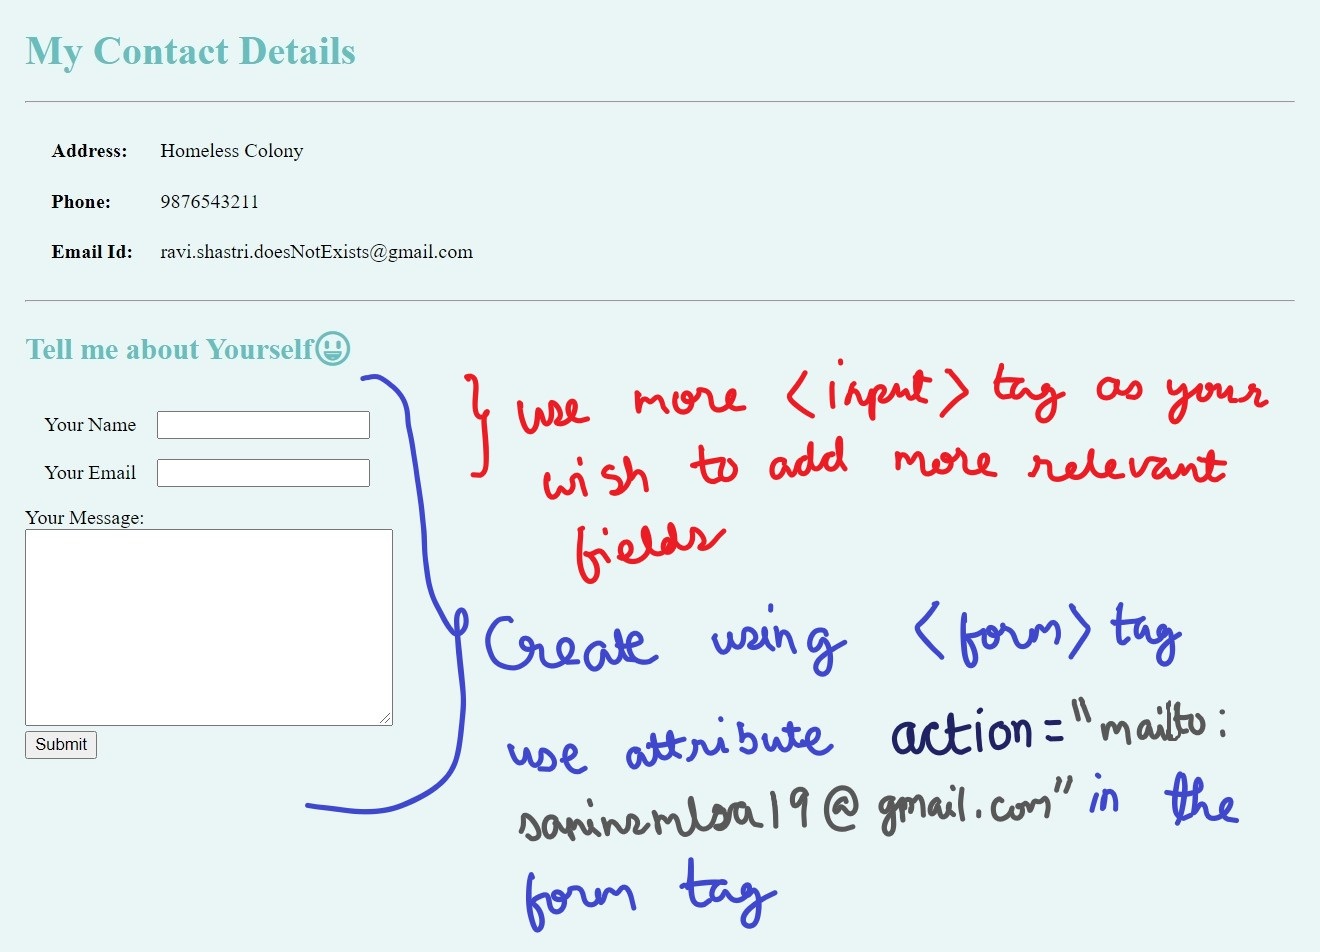 My Contact Details
Address: Homeless Colony
Phone: 9876543211
Email Id: ravi.shastri.doesNotExists@gmail.com
Tell me about Yourself😃
Your Name
Your Email
Your Message:
Submit
use more <input> tag as your
wish to add more relevant
fields
Create using <form> tag
use attribute action="mailto:
saninsmlsa19@gmail.com" in the
form tag